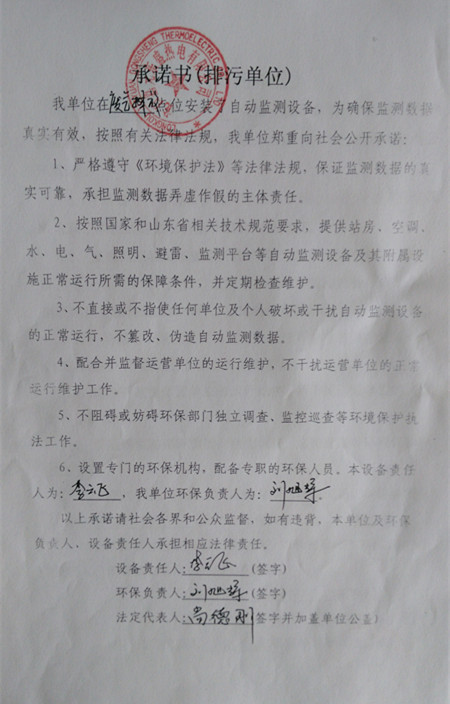 SHENG THERMOELECTRIC
盛热电有限
承诺书(排污单位)
我单位在废气排放点位安装了自动监测设备，为确保监测数据
真实有效，按照有关法律法规，我单位郑重向社会公开承诺：
1、严格遵守《环境保护法》等法律法规，保证监测数据的真
实可靠，承担监测数据弄虚作假的主体责任。
2、按照国家和山东省相关技术规范要求，提供站房、空调、
水、电、气、照明、避雷、监测平台等自动监测设备及其附属设
施正常运行所需的保障条件，并定期检查维护。
3、不直接或不指使任何单位及个人破坏或干扰自动监测设备
的正常运行，不篡改、伪造自动监测数据。
4、配合并监督运营单位的运行维护，不干扰运营单位的正常
运行维护工作。
5、不阻碍或妨碍环保部门独立调查、监控巡查等环境保护执
法工作。
6、设置专门的环保机构，配备专职的环保人员。本设备责任
人为：李云飞，我单位环保负责人为：刘旭辉
以上承诺请社会各界和公众监督，如有违背，本单位及环保
负责人，设备责任人承担相应法律责任。
设备责任人：李云飞(签字)
环保负责人：刘旭辉(签字)
法定代表人：尚德刚(签字并加盖单位公盖)